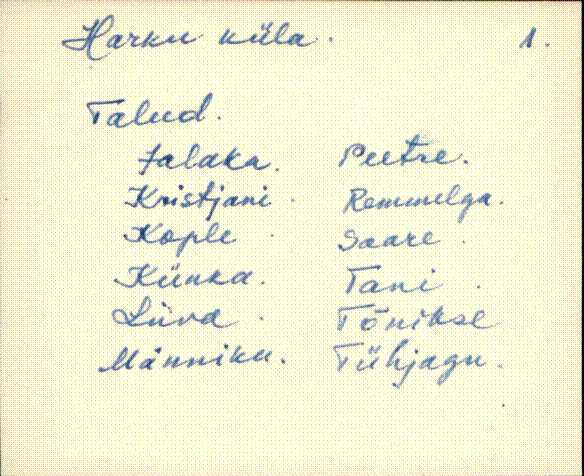 Harku küla. 1.
Talud.
Jalaka. Peetre.
Kristjani. Remmelga.
Kople. Saare.
Künka. Tani.
Liiva. Tõnikse
Männiku. Tühjagu.